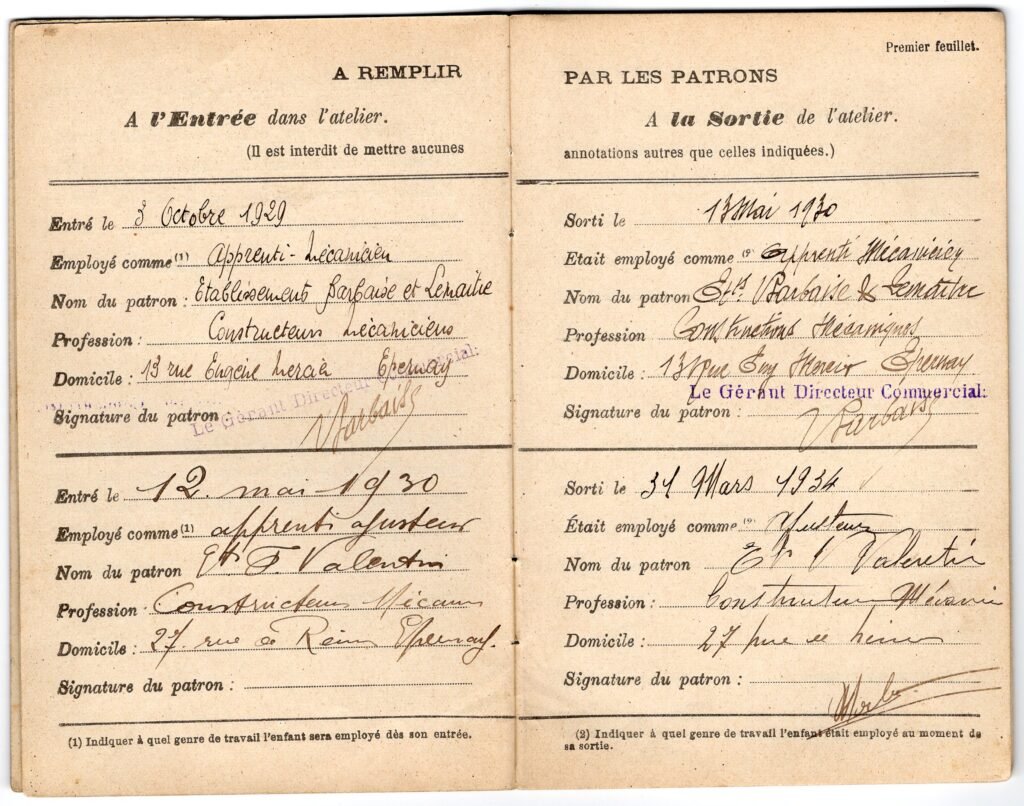 A REMPLIR
A l'Entrée dans l'atelier.
(Il est interdit de mettre aucunes
Entré le 3 Octobre 1929
Employé comme (1) Apprenti-Mécanicien
Nom du patron : Etablissements Barbaise et Lemaitre
Profession : Constructeurs Mécaniciens
Domicile : 13 rue Eugène Mercier Epernay
Le Gérant Directeur Commercial:
Signature du patron Barbaise
Entré le 12 mai 1930
Employé comme (1) apprenti ajusteur
Nom du patron Ets F. Valentin
Profession : Constructeur Mécanicien
Domicile : 27 rue de Reims Epernay.
Signature du patron :
(1) Indiquer à quel genre de travail l'enfant sera employé dès son entrée.
Premier feuillet.
PAR LES PATRONS
A la Sortie de l'atelier.
annotations autres que celles indiquées.)
Sorti le 13 Mai 1930
Etait employé comme (2) Apprenti Mécanicien
Nom du patron Ets Barbaise & Lemaitre
Profession Constructions Mécaniques
Domicile : 13 Rue Eug Mercier Epernay
Le Gérant Directeur Commercial:
Signature du patron : Barbaise
Sorti le 31 Mars 1934
Était employé comme (2) Ajusteur
Nom du patron Ets Valentin
Profession : Constructeur Mécanicien
Domicile : 27 rue de Reims
Signature du patron :
(2) Indiquer à quel genre de travail l'enfant était employé au moment de
sa sortie.